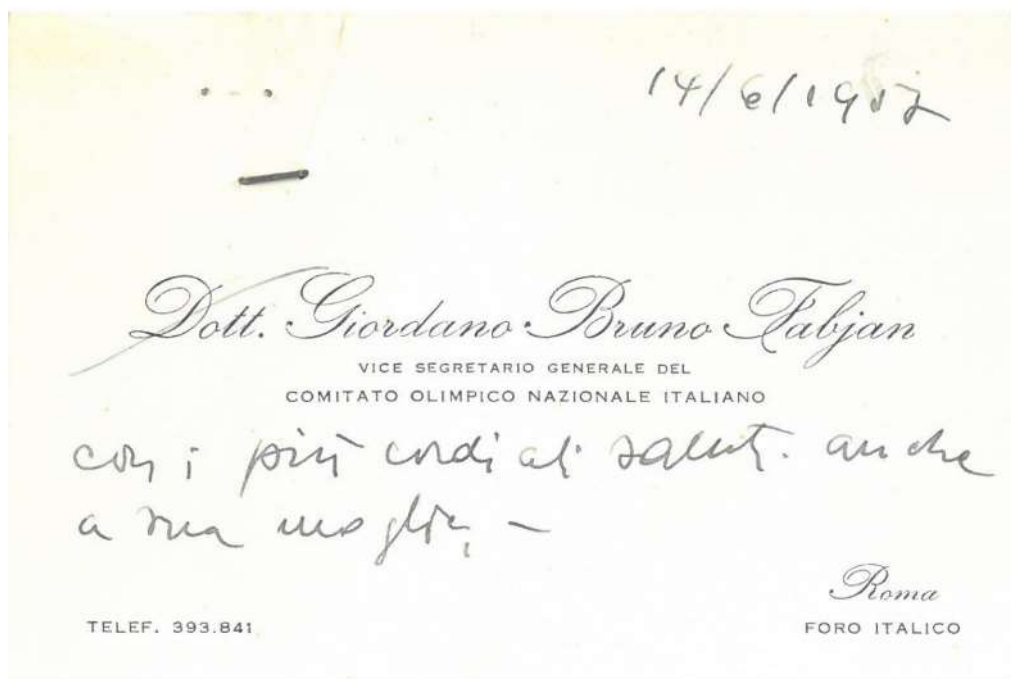 14/6/1957
Dott. Giordano Bruno Fabjan
VICE SEGRETARIO GENERALE DEL
COMITATO OLIMPICO NAZIONALE ITALIANO
con i più cordiali saluti. anche
a sua moglie, –
Roma
TELEF. 393.841
FORO ITALICO